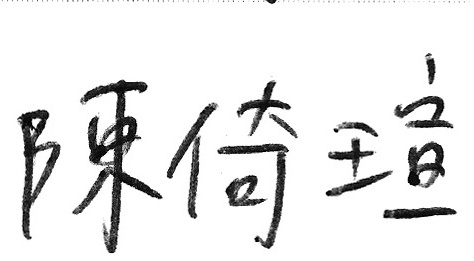 陳倚瑄